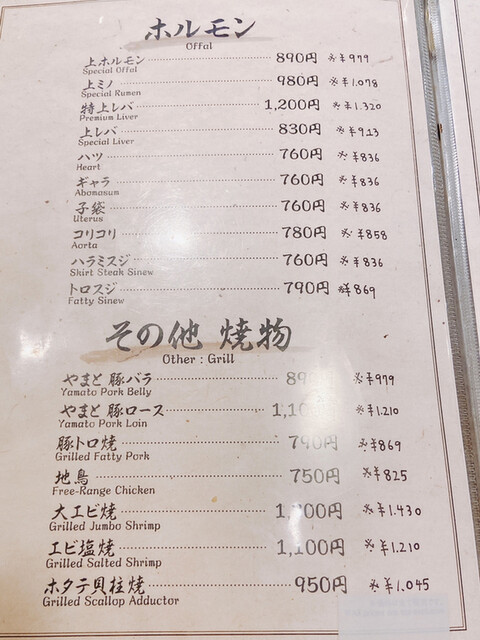 ホルモン
Offal
上ホルモン 890円 ※¥979
Special Offal
上ミノ 980円 ※¥1.078
Special Rumen
特上レバ 1,200円 ※¥1.320
Premium Liver
上レバ 830円 ※¥913
Special Liver
ハツ 760円 ※¥836
Heart
ギャラ 760円 ※¥836
Abomasum
子袋 760円 ※¥836
Uterus
コリコリ 780円 ※¥858
Aorta
ハラミスジ 760円 ※¥836
Skirt Steak Sinew
トロスジ 790円 ※¥869
Fatty Sinew
その他 焼物
Other : Grill
やまと 豚バラ ※¥979
Yamato Pork Belly
やまと 豚ロース ※¥1.210
Yamato Pork Loin
豚トロ焼 790円 ※¥869
Grilled Fatty Pork
地鳥 750円 ※¥825
Free-Range Chicken
大エビ焼 1,300円 ※¥1.430
Grilled Jumbo Shrimp
エビ塩焼 1,100円 ※¥1.210
Grilled Salted Shrimp
ホタテ貝柱焼 950円 ※¥1.045
Grilled Scallop Adductor